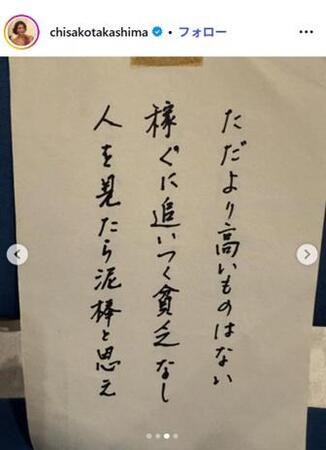 chisakotakashima • フォロー
ただより高いものはない
稼ぐに追いつく貧乏なし
人を見たら泥棒と思え